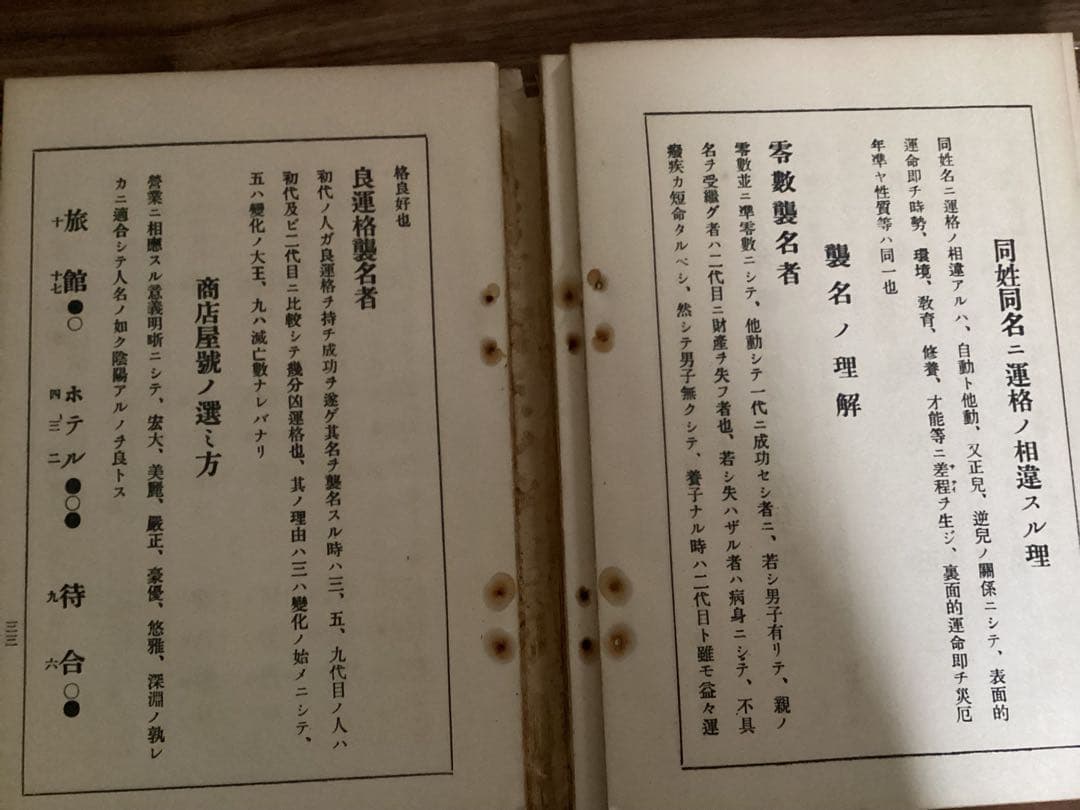 同姓同名ニ運格ノ相違スル理
同姓名ニ運格ノ相違アルハ、自動ト他動、又正兒、逆兒ノ關係ニシテ、表面的
運命即チ時勢、環境、敎育、修養、才能等ニ差程ヲ生ジ、裏面的運命即チ災厄
年準ヤ性質等ハ同一也
襲名ノ理解
零數襲名者
零數並ニ準零數ニシテ、他動シテ一代ニ成功セシ者ニ、若シ男子有リテ、親ノ
名ヲ受繼グ者ハ二代目ニ財產ヲ失フ者也、若シ失ハザル者ハ病身ニシテ、不具
癈疾カ短命タルベシ、然シテ男子無クシテ、養子ナル時ハ二代目ト雖モ益々運
格良好也
良運格襲名者
初代ノ人ガ良運格ヲ持チ成功ヲ遂ゲ其名ヲ襲名スル時ハ三、五、九代目ノ人ハ
初代及ビ二代目ニ比較シテ幾分凶運格也、其ノ理由ハ三ハ變化ノ始メニシテ、
五ハ變化ノ大王、九ハ滅亡數ナレバナリ
商店屋號ノ選ミ方
營業ニ相應スル意義明晰ニシテ、宏大、美麗、嚴正、豪優、悠雅、深淵ノ孰レ
カニ適合シテ人名ノ如ク陰陽アルノヲ良トス
旅館●○ ホテル●○● 待合○●
十 十七 四 三 二 九 六
三三